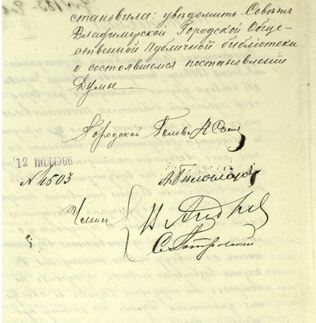 становила: уведомить Советъ
Владимирской Городской Обще-
ственной Публичной библіотеки
о состоявшемся постановленіи
Думы.
Городской Голова
12 НОЯ 1906
№ 4503
Члены